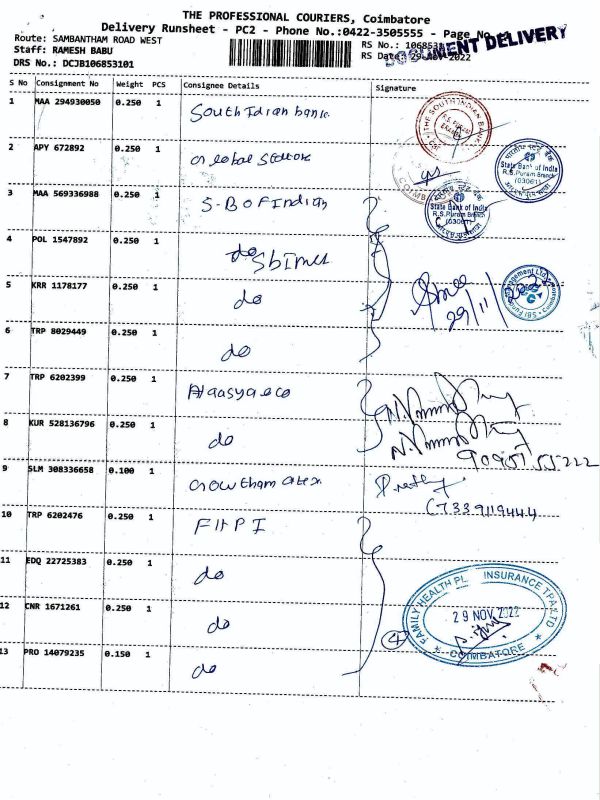 THE PROFESSIONAL COURIERS, Coimbatore
Delivery Runsheet - PC2 - Phone No.:0422-3505555 - Page No.
DOCUMENT DELIVERY
Route: SAMBANTHAM ROAD WEST
RS No.: 1068531
Staff: RAMESH BABU
RS Date: 29-Nov-2022
DRS No.: DCJB106853101
S No Consignment No Weight PCS Consignee Details Signature
1 MAA 294930050 0.250 1 South Idian bank
THE SOUTH INDIAN BANK
2 APY 672892 0.250 1
State Bank of India
R.S.Puram Branch
(03061)
3 MAA 569336988 0.250 1 S-B OF Indian
State Bank of India
R.S.Puram Branch
4 POL 1547892 0.250 1 do
5 KRR 1178177 0.250 1 do
29/11/2022
6 TRP 8029449 0.250 1 do
7 TRP 6202399 0.250 1
8 KUR 528136796 0.250 1 do
9 SLM 308336658 0.100 1
10 TRP 6202476 0.250 1 FHPI
11 EDQ 22725383 0.250 1 do
FAMILY HEALTH PL INSURANCE TPA LTD
29 NOV 2022
COIMBATORE
12 CNR 1671261 0.250 1 do
4
13 PRO 14079235 0.150 1 do